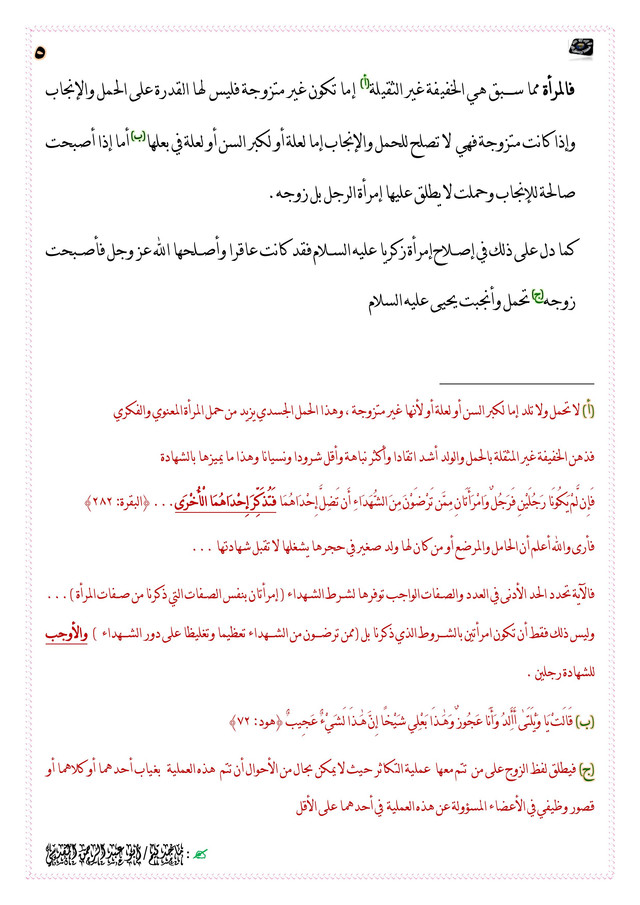 ٥
فالمرأة مما سبق هي الخفيفة غير الثقيلة(أ) إما تكون غير متزوجة فليس لها القدرة على الحمل والإنجاب
وإذا كانت متزوجة فهي لا تصلح للحمل والإنجاب إما لعلة أو لكبر السن أو لعلة في بعلها(ب) أما إذا أصبحت
صالحة للإنجاب وحملت لا يطلق عليها إمرأة الرجل بل زوجه .
كما دل على ذلك في إصلاح إمرأة زكريا عليه السلام فقد كانت عاقرا وأصلحها الله عز وجل فأصبحت
زوجه(ج) تحمل وأنجبت يحيى عليه السلام
(أ) لا تحمل ولا تلد إما لكبر السن أو لعلة أو لأنها غير متزوجة ، وهذا الحمل الجسدي يزيد من حمل المرأة المعنوي والفكري
فذهن الخفيفة غير المثقلة بالحمل والولد أشد اتقادا وأكثر نباهة وأقل شرودا ونسيانا وهذا ما يميزها بالشهادة
فَإِن لَّمْ يَكُونَا رَجُلَيْنِ فَرَجُلٌ وَامْرَأَتَانِ مِمَّن تَرْضَوْنَ مِنَ الشُّهَدَاءِ أَن تَضِلَّ إِحْدَاهُمَا فَتُذَكِّرَ إِحْدَاهُمَا الْأُخْرَى . . . ﴿البقرة: ٢٨٢﴾
فأرى والله أعلم أن الحامل والمرضع أو من كان لها ولد صغير في حجرها يشغلها لا تقبل شهادتها . . .
فالآية تحدد الحد الأدنى في العدد والصفات الواجب توفرها لشرط الشهداء ( إمرأتان بنفس الصفات التي ذكرنا من صفات المرأة ) . . .
وليس ذلك فقط أن تكون امرأتين بالشروط الذي ذكرنا بل (ممن ترضون من الشهداء تعظيما وتغليظا على دور الشهداء ) والأوجب
للشهادة رجلين .
(ب) قَالَتْ يَا وَيْلَتَىٰ أَأَلِدُ وَأَنَا عَجُوزٌ وَهَٰذَا بَعْلِي شَيْخًا إِنَّ هَٰذَا لَشَيْءٌ عَجِيبٌ ﴿هود: ٧٢﴾
(ج) فيطلق لفظ الزوج على من تتم معها عملية التكاثر حيث لا يمكن بحال من الأحوال أن تتم هذه العملية بغياب أحدهما أو كلاهما أو
قصور وظيفي في الأعضاء المسؤولة عن هذه العملية في أحدهما على الأقل